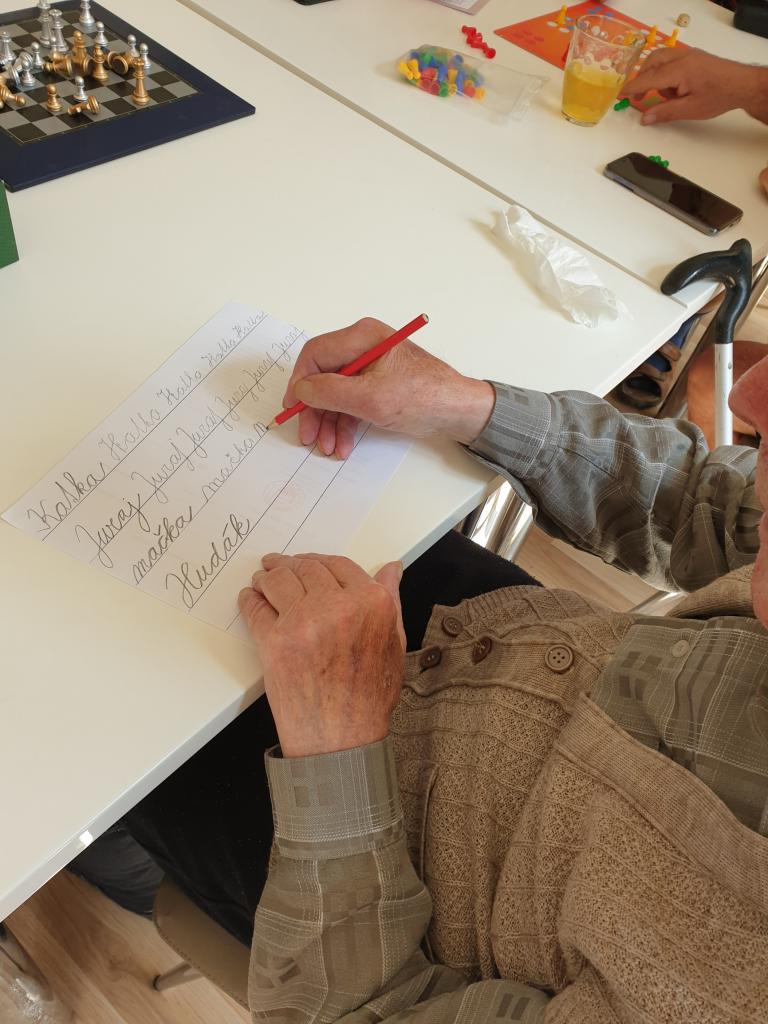 Katka Katka Katka Katka Katka
Juraj Juraj Juraj Juraj Juraj Juraj
mačka mačka m
Hudák